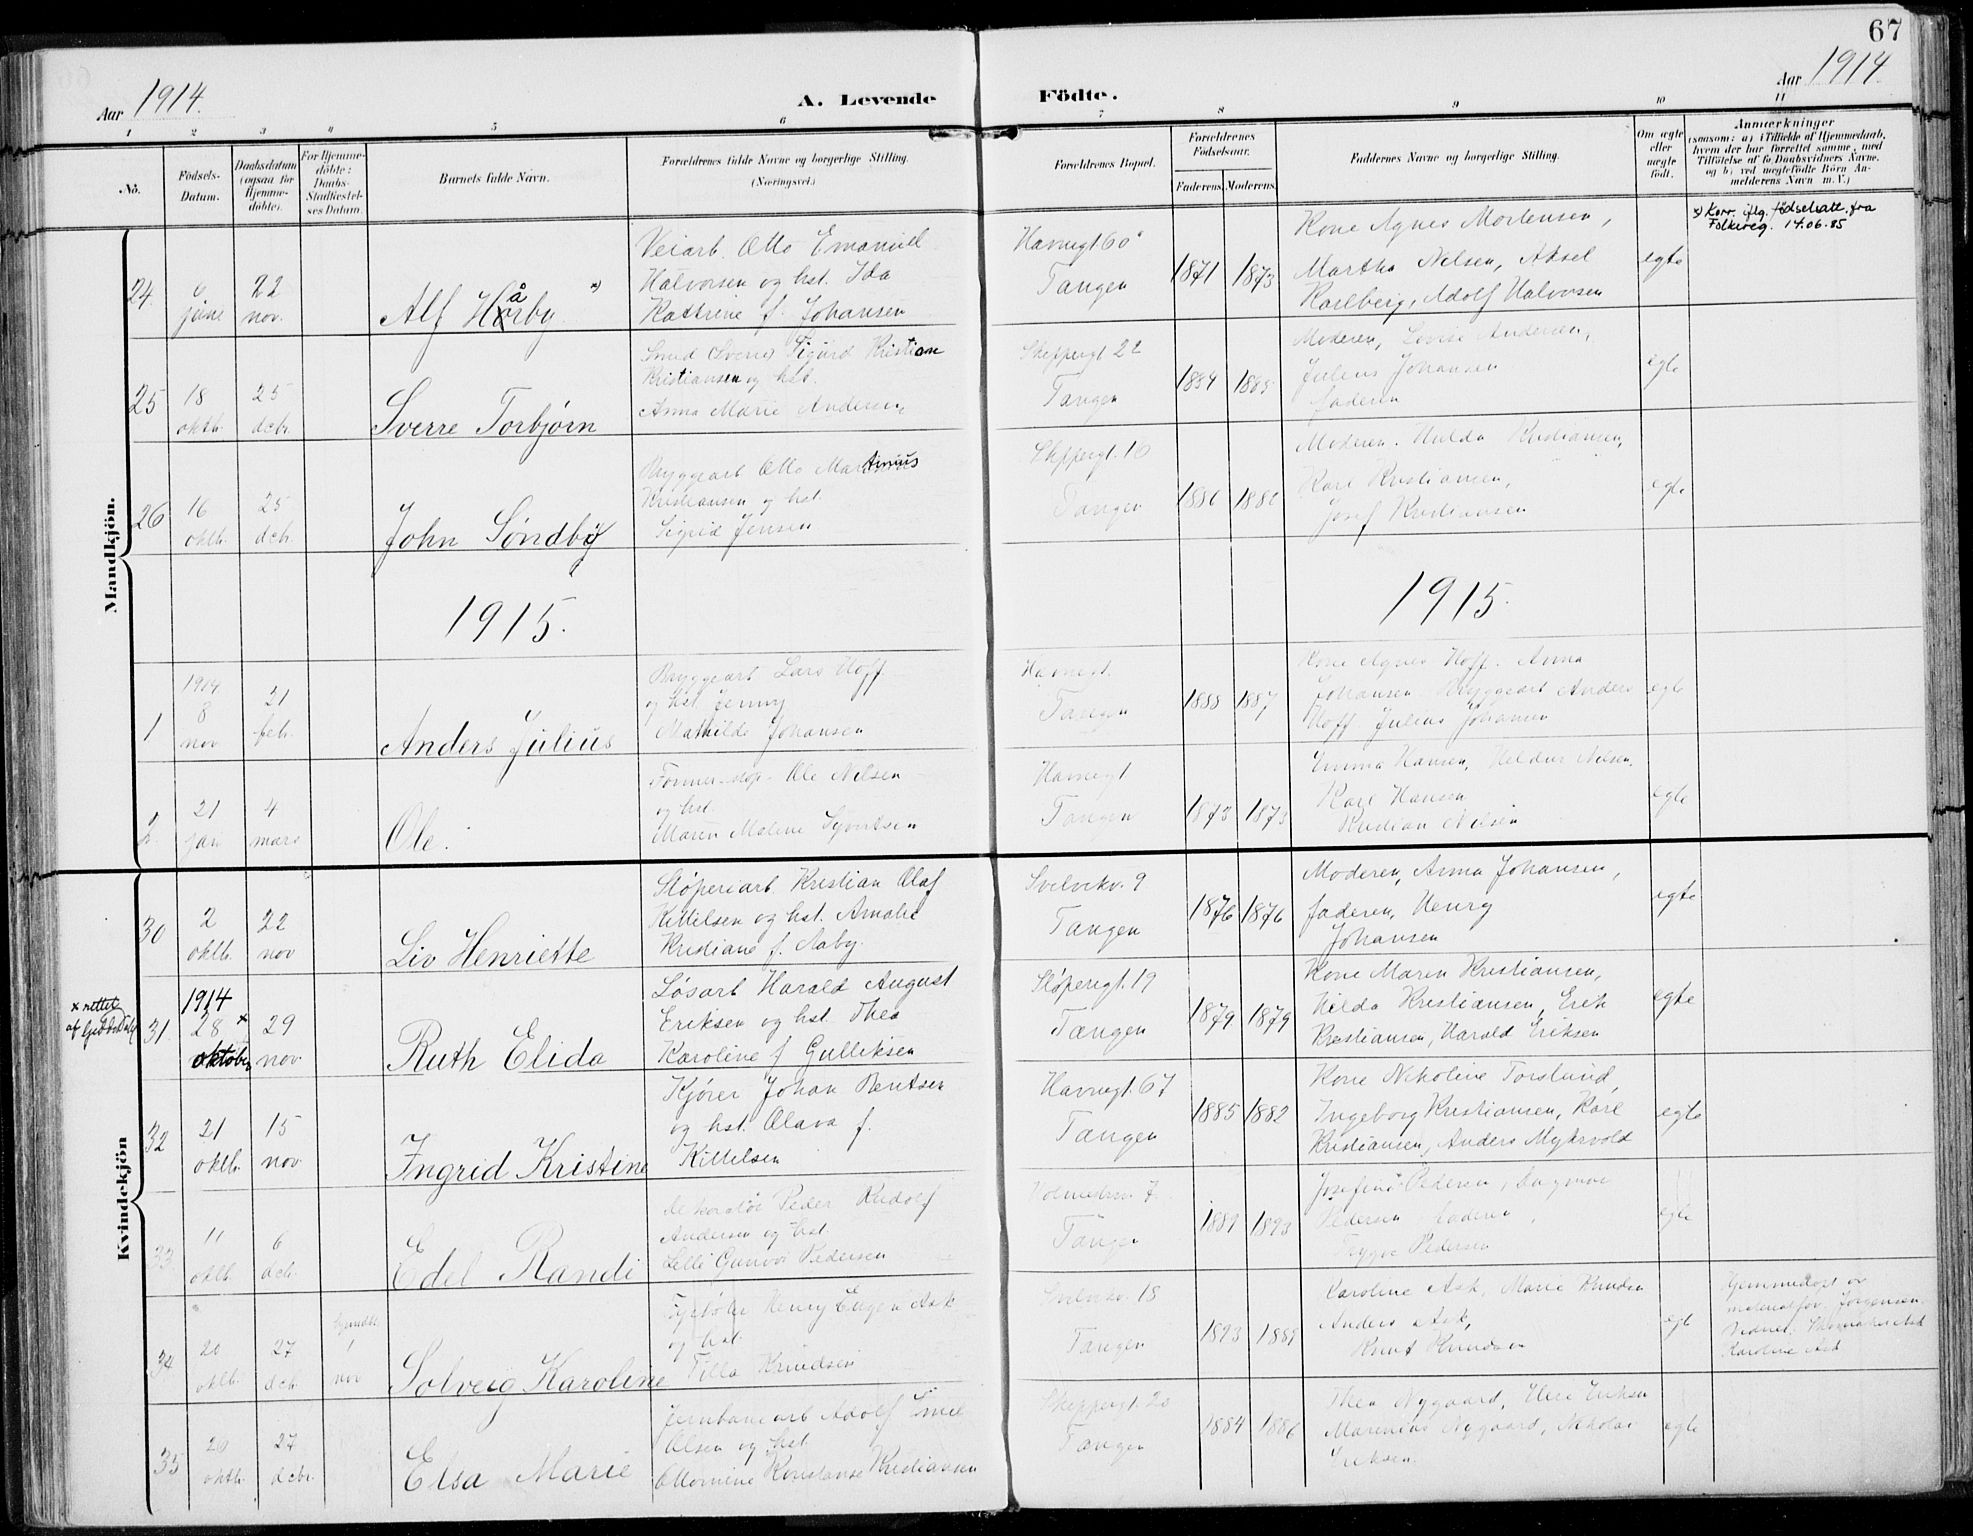 67
Aar 1914.
A. Levende
Födte.
Aar 1914.
1 2 3 4 5 6 7 8 9 10 11
No.
Födsels-
Datum.
Daabsdatum
(ogsaa for
Hjemme-
døbte).
For Hjemme-
døbte:
Daabs-
Stadfæstel-
ses Datum.
Barnets fulde Navn.
Forældrenes fulde Navne og borgerlige Stilling.
(Næringsvei.)
Forældrenes Bopæl.
Forældrenes
Födselsaar.
Faderens. Moderens.
Faddernes Navne og borgerlige Stilling.
Om ægte
eller
uægte
födt.
Anmærkninger
(saasom: a) i Tilfælde af Hjemmedaab,
hvem der har forrettet samme, med
Tilföielse af to Daabsvidners Navne,
og b) ved uægtefödte Börn An-
melderens Navn m. V.)
Mandkjön.
24
6
juni
22
nov.
Alf Hårby x)
Veiarb. Otto Emanuel
Halvorsen og hst. Ida
Kathrine f. Johansen
Havnegt. 60
Tangen
1871 1873
Kone Agnes Mortensen,
Martha Nelsen, Aksel
Karlberg, Adolf Halvorsen
egte
x) Korr. iflg. fødselsatt. fra
Folkereg. 14.06.85
25
18
oktb.
25
dcbr.
Sverre Torbjørn
Smed (Sverre) Sigurd Kristian
Kristiansen og hst.
Anna Marie Andersen
Skippergt 22
Tangen
1884 1885
Moderen, Lovise Andersen,
Julius Johansen
faderen
egte
26
16
oktb.
25
dcbr.
John Søndby
Bryggearb Otto Martinius
Kristiansen og hst.
Sigrid Jensen
Skippergt. 10
Tangen
1886 1882
Moderen. Hulda Kristiansen,
Karl Kristiansen,
Josef Kristiansen
egte
1915.
1915.
1
1914
8
nov
21
febr.
Anders Julius
Bryggearb Lars Hoff
og hst. Jenny
Mathilde Johansen
Havnegt.
Tangen
1888 1887
Kone Agnes Hoff. Anna
Johansen Bryggearb Anders
Hoff. Julius Johansen
egte
2.
21
jan
4
mars
Ole.
Ole Nilsen
og hst.
Maren Maline Syvertsen
Havnegt
Tangen
1873 1873
Emma Hansen, Heldur Nilsen.
Karl Hansen
Kristian Nilsen
egte
Kvindekjön
30
2
oktb.
22
nov
Liv Henriette
Sløperiarb. Kristian Olaf
Kittilsen og hst. Amalie
Kristiane f. Aaby.
Svelvikv. 9
Tangen
1876 1876
Moderen, Anna Johansen,
faderen, Henry
Johansen
egte
x rettet
af
31.
1914
28 x
oktober
29
nov
Ruth Elida
Løsarb Harald August
Eriksen og hst Thea
Karoline f Gulliksen
Sløperigt. 19
Tangen
1879 1879
Kone Maren Kristiansen,
Hilda Kristiansen, Erik
Kristiansen, Harald Eriksen
egte
32
21
oktb.
15
nov
Ingrid Kristine
Kjører Johan Bentsen
og hst. Olava f.
Kittelsen
Havnegt. 67
Tangen
1885 1882
Kone Nikoline Torslund,
Ingeborg Kristiansen, Karl
Kristiansen, Anders Myhrvold
egte
33
11
oktb.
6
dcb.
Edel Randi
Dekoratør Peder Rudolf
Andersen og hst.
Lelli Gunvor Pedersen
Tangen
1889 1893
Josefine Pedersen, Dagmar
Pedersen faderen,
Trygve Pedersen
egte
34
20
oktb.
27
dcb
hjemdbt
1
nov
Solveig Karoline
Fyrbøter Henry Eugen Ask
og hst.
Tilla Knudsen
Svelvikv. 18
Tangen
1893 1889
Karoline Ask, Marie Knudsen
Anders Ask,
Knut Knudsen
egte
Hjemmedøpt av
Jørgensen
Karoline Ask
35
20
oktb.
27
dcbr.
Elsa Marie
Jernbanearb Adolf Emil
Olsen og hst.
Ottomine Konstanse Kristiansen
Skippergt. 20
Tangen
1884 1886
Thea Nygaard, Eriksen
Marenius Nygaard, Nikolai
Eriksen.
egte